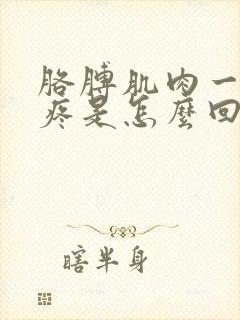 胳膊肌肉一
疼是怎麼回
瞎半身